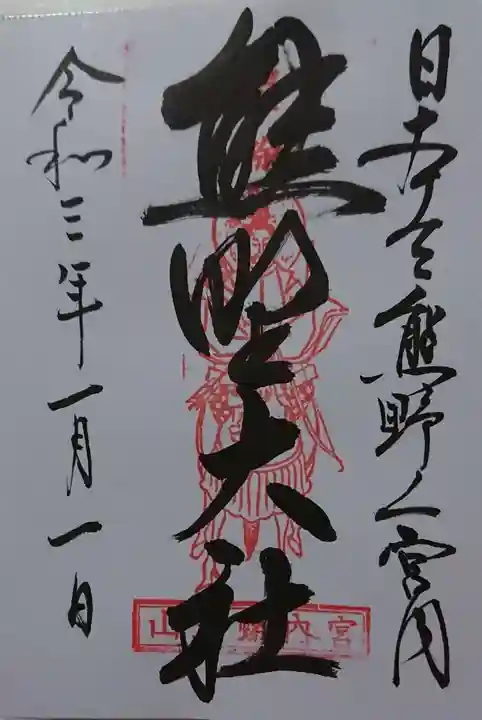 日本三熊野之宮内
熊野大社
令和三年一月一日
宮内